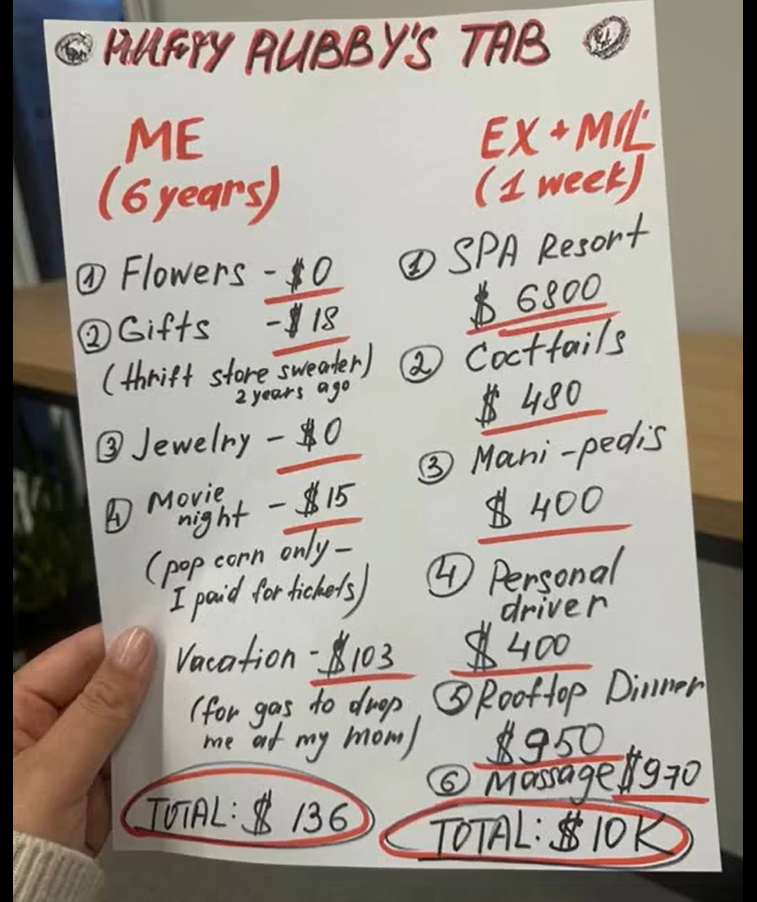 HUFTY AUBBY'S TAB
ME
(6 years)
① Flowers - $0
② Gifts - $18
(thrift store sweater)
2 years ago
③ Jewelry - $0
④ Movie
night - $15
(pop corn only –
I paid for tickets)
Vacation - $103
(for gas to drop
me at my mom)
TOTAL: $ 136
EX + MIL
(1 week)
① SPA Resort
$ 6800
② Coctfails
$ 480
③ Mani-pedis
$ 400
④ Personal
driver
$ 400
⑤ Rooftop Dinner
$950
⑥ Massage $970
TOTAL: $10K